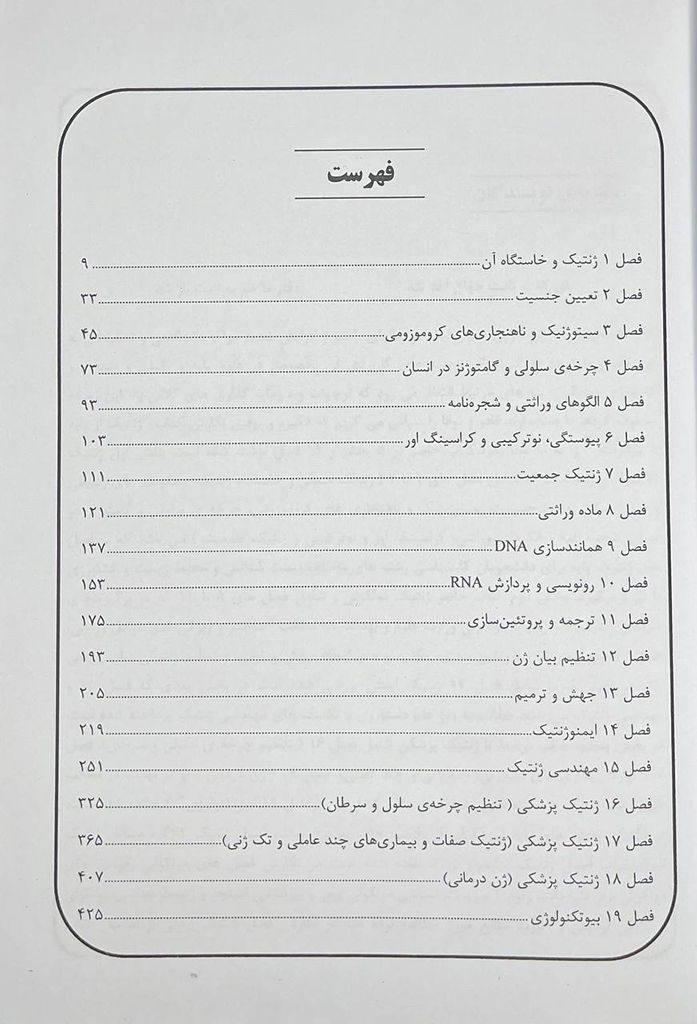 فهرست
فصل ۱ ژنتیک و خاستگاه آن ۹
فصل ۲ تعیین جنسیت ۳۳
فصل ۳ سیتوژنیک و ناهنجاری‌های کروموزومی ۴۵
فصل ۴ چرخه‌ی سلولی و گامتوژنز در انسان ۷۳
فصل ۵ الگوهای وراثتی و شجره‌نامه ۹۳
فصل ۶ پیوستگی، نوترکیبی و کراسینگ اور ۱۰۳
فصل ۷ ژنتیک جمعیت ۱۱۱
فصل ۸ ماده وراثتی ۱۲۱
فصل ۹ همانندسازی DNA ۱۳۷
فصل ۱۰ رونویسی و پردازش RNA ۱۵۳
فصل ۱۱ ترجمه و پروتئین‌سازی ۱۷۵
فصل ۱۲ تنظیم بیان ژن ۱۹۳
فصل ۱۳ جهش و ترمیم ۲۰۵
فصل ۱۴ ایمنوژنتیک ۲۱۹
فصل ۱۵ مهندسی ژنتیک ۲۵۱
فصل ۱۶ ژنتیک پزشکی ( تنظیم چرخه‌ی سلول و سرطان) ۳۲۵
فصل ۱۷ ژنتیک پزشکی (ژنتیک صفات و بیماری‌های چند عاملی و تک ژنی) ۳۶۵
فصل ۱۸ ژنتیک پزشکی (ژن درمانی) ۴۰۷
فصل ۱۹ بیوتکنولوژی ۴۲۵